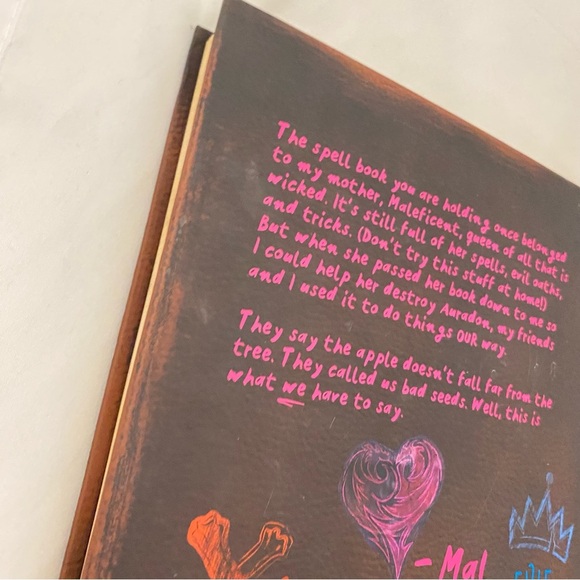 The spell book you are holding once belonged
to my mother, Maleficent, queen of all that is
wicked. It's still full of her spells, evil oaths,
and tricks. (Don't try this stuff at home!)
But when she passed her book down to me so
I could help her destroy Auradon, my friends
and I used it to do things OUR way.
They say the apple doesn't fall far from the
tree. They called us bad seeds. Well, this is
what we have to say.
- Mal